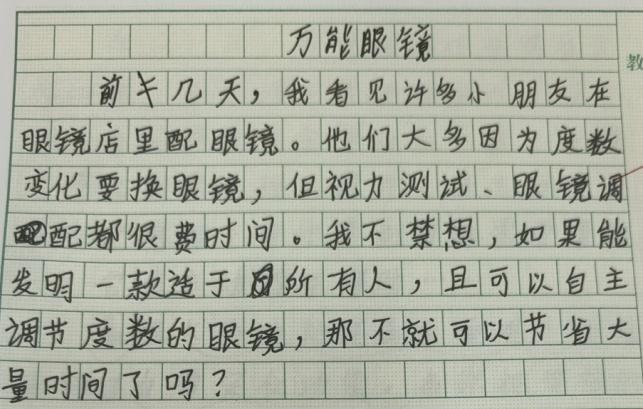 万能眼镜
前十几天，我看见许多小朋友在
眼镜店里配眼镜。他们大多因为度数
变化要换眼镜，但视力测试、眼镜调
配都很费时间。我不禁想，如果能
发明一款适于所有人，且可以自主
调节度数的眼镜，那不就可以节省大
量时间了吗？